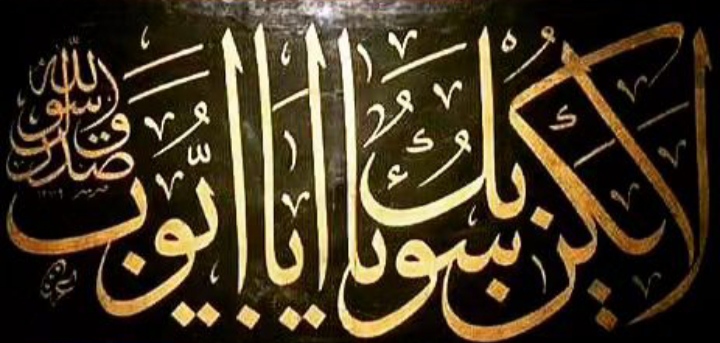 لا يكن بك سوء يا ابا ايوب
صدق رسول الله